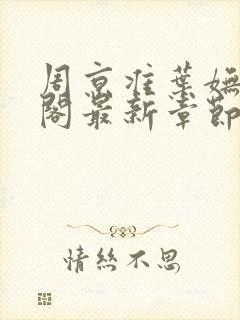 周京淮葉嫵
閣最新章節
情絲不思